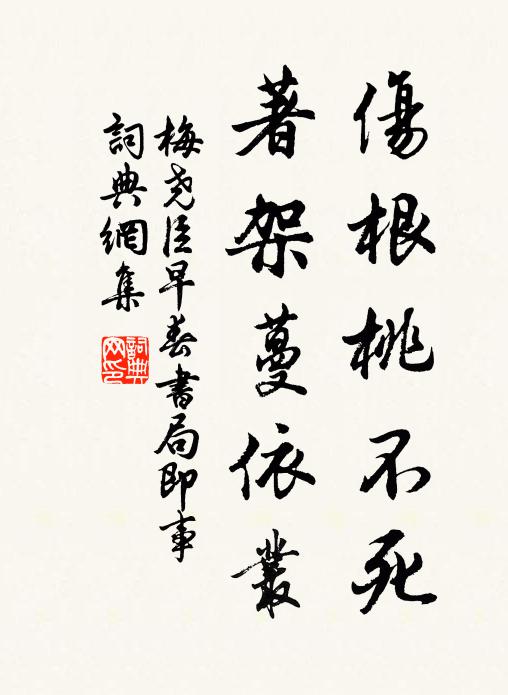 傷根桃不死
著架蔓依叢
梅尧臣早春書局即事
詞典網集
詞典網印